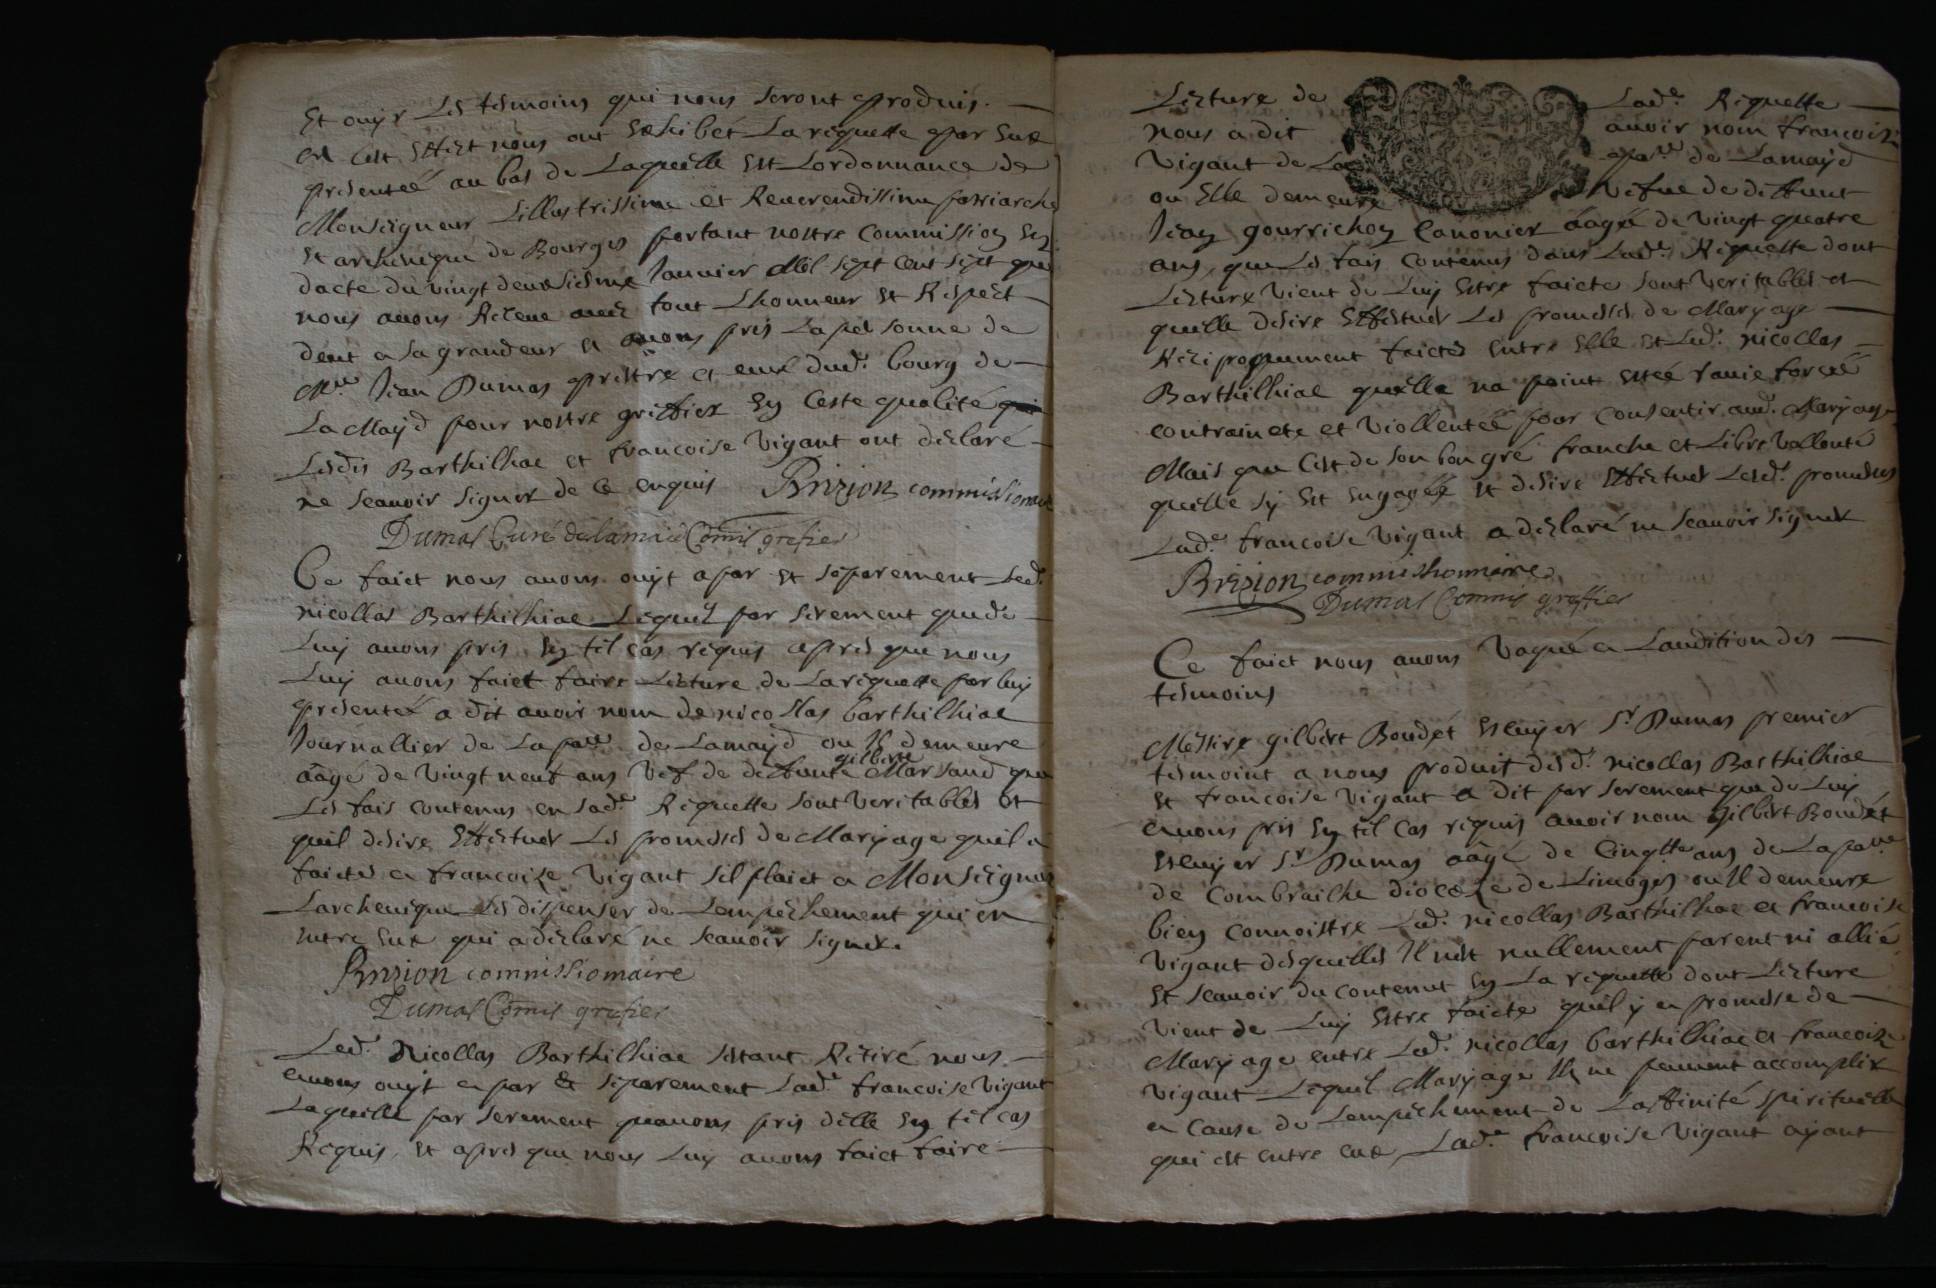 Et ouyr les tesmoins qui nous seront produis.
en cest effect nous ont exhibé la requette par eux
presenteé au bas de laquelle est lordonnance de
Monseigneur Lillustrissime et Reverendissime patriarche
et archevéque de Bourges portant nostre commission en
dacte du vingt deuxsiesme Janvier Mil sept cent sept que
nous avons Receue avec tout Lhonneur et Respect
deut a sa grandeur et avons pris La personne de
Mre Jean Dumas prestre et curé dudt bourg de
La Mayd pour nostre greffier en ceste qualité
Lesdis Barthilhac et francoise vigant ont declaré
ne scavoir signer de ce enquis Brizion commissionaire
Dumas Curé de lamaid Commis grefier
Ce faict nous avons ouyt apar et séparement Ledt
nicollas Barthilhiac Lequel par serement que de
Luy avons pris en tel cas requis apres que nous
Luy avons faict faire Lecture de La requette par luy
presenteé a dit avoir nom de nicollas barthilhiac
Journallier de La paoue de Lamayd ou Il demeure
aâgé de vingt neuf ans vef de deffunte gilberte Marsaud que
Les fais contenus en Lade Requette sont veritables et
quil desire effectuer Les promeses de Maryage quil a
faictes a francoize vigant sil plaict a Monseigneur
Larcheveque Les dispenser de Lempechement qui en
entre eux qui a declaré ne scavoir signer.
Brizion commissionnaire
Dumas Commis grefier
Ledt Nicollas Barthilhiac sestant Retiré nous
avons ouyt a par & séparement Lade francoise vigant
Laquelle par serement quavons pris delle en tel cas
Requis, et apres que nous Luy avons faict faire
Lecture de Lade Requette
nous a dit avoir nom francoise
vigant de La paoue de Lamayd
ou Elle demeure vefue de deffunt
Jean gourrichon Canonier aâgé de vingt quatre
ans, que Les fais contenus dans Lade Requette dont
Lecture vient de Luy estre faicte sont veritables et
quelle desire effectuer Les promeses de Maryage
Reciproquement faictes entre elle et Ledt nicollas
Barthilhiac quelle na point esteé ravie forceé
contraincte et viollenteé pour consentir audt Maryage
Mais que Cest de son bon gré franche et Libre vollonté
quelle sy est engagéé et desire effectuer Lesdt promeses
Lade francoise vigant a declaré ne scavoir signer
Brizion commissionnaire
Dumas Commis greffier
Ce faict nous avons vaqué a Laudition des
tesmoins
Messire gilbert Boudét escuyer Sr Dumas premier
tesmoint a nous produit desdt nicollas Barthilhiac
et francoise vigant a dit par serement que de Luy
avons pris en tel cas requis avoir nom gilbert Boudét
escuyer Sr Dumas aâgé de Cinqtte ans de La paoue
de Combrailhe diocéze de Limoges ou Il demeure
bien connoistre Ledt nicollas Barthilhac et francoise
vigant desquelles Il nest nullement parent ni allié
et scavoir du contenut en La requette dont Lecture
vient de Luy estre faicte quil y a promesse de
Maryage entre Ledt nicollas barthilhiac et francoize
vigant Lequel Maryage Ils ne peuvent accomplir
a cause de Lempechement de Laffinité spirituelle
qui est entre eux, Lade francoise vigant ayant